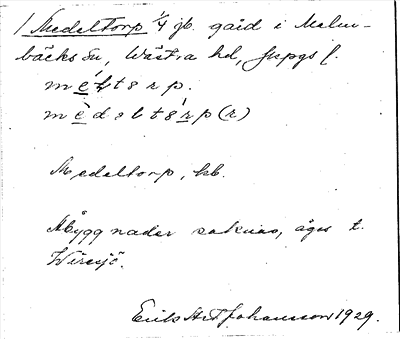 / Medeltorp 1/4 jb. gård i Malm-
bäcks sn, Västra hd, Jkpgs l.
m e l t s r p.
m e d e l t s r p (r)
Medeltorp, kb.
Åbyggnader saknas, äges t.
Viresjö.
Erik Art Johansson 1929.